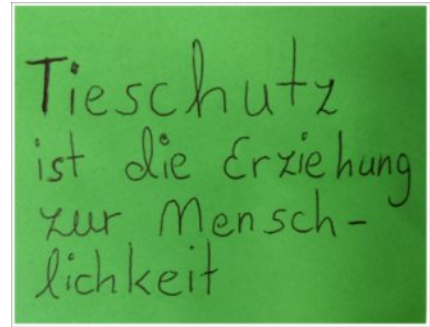 Tieschutz
ist die Erziehung
zur Mensch-
lichkeit